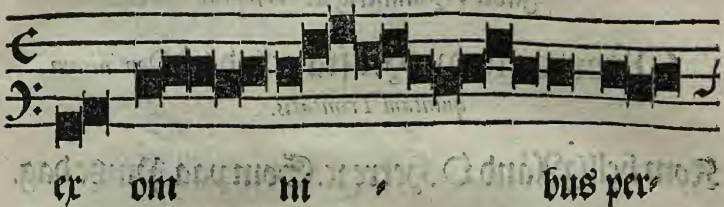 ex om ni - bus per-